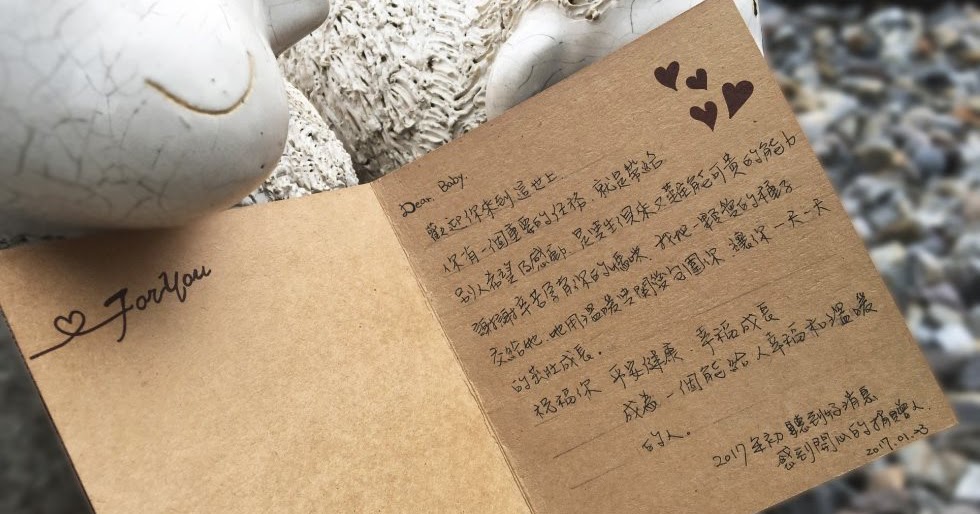 For You
Dear. Baby.
歡迎你來到這世上
你有一個重要的任務．就是帶給
別人希望及感動 是與生俱來又難能可貴的能力
謝謝辛苦孕育你的媽咪．我把一顆愛的種子
交給她．她用溫暖與關愛包圍你 讓你一天一天
的茁壯成長．
祝福你 平安健康．幸福成長
成為一個能給人幸福和溫暖
的人。
2017年初 聽到好消息
感到開心的捐贈人．
2017.01.23